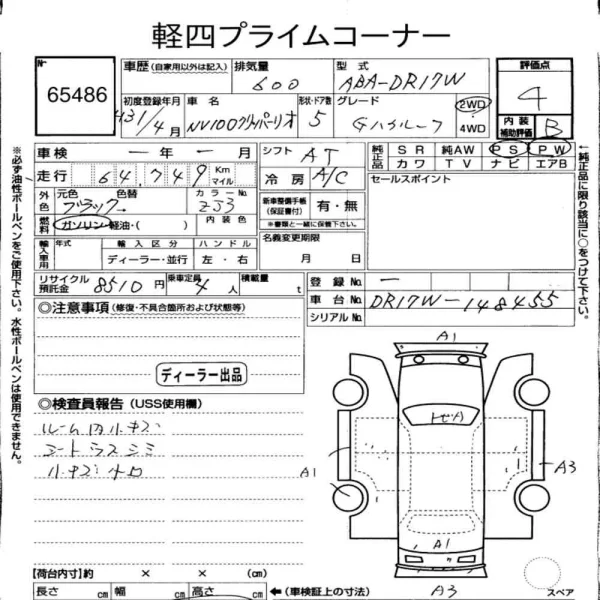 軽四プライムコーナー
№ 65486
車歴(自家用以外は記入) 排気量 600 型式 ABA-DR17W 評価点 4
初度登録年月 H31/4月 車名 NV100クリッパーリオ 形状・ドア数 5 グレード Gハイルーフ 2WD 4WD 内装補助評価 B
車検 一年一月 シフト AT 純正品 SR 純AW PS PW
走行 64,749 Km マイル 冷房 A/C カワ TV ナビ エアB
外色 元色 ブラック 色替 カラーNo. ZJ3 新車整備手帳(保証書付) 有・無 セールスポイント
燃料 ガソリン・軽油・( ) 内装色 ※書類と一緒に保管下さい。
輸入車用 年式 輸入区分 ディーラー・並行 ハンドル 左・右 名義変更期限 月 日
リサイクル預託金 8510円 乗車定員 4人 積載量 t 登録No. ー
車台No. DR17W-148455
シリアルNo.
◎注意事項(修復・不具合箇所および状態等)
ディーラー出品
◎検査員報告(USS使用欄)
ルーム内小キズ
シートウスシミ
小キズ
A1
A1
A3
A1
A3
スペア
【荷台内寸】約 × × (cm)
長さ cm 幅 cm 高さ cm ←(車検証上の寸法)
※必ず油性ボールペンをご使用下さい。水性ボールペンは使用できません。
←純正品に限り該当に○をつけて下さい。